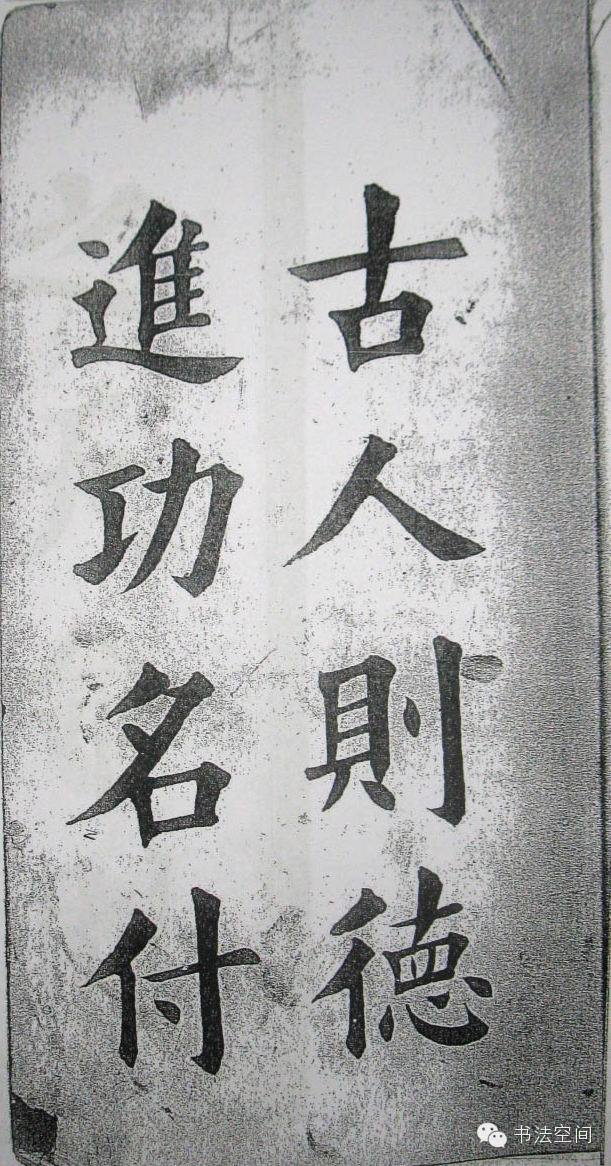 古人則德
進功名付
书法空间